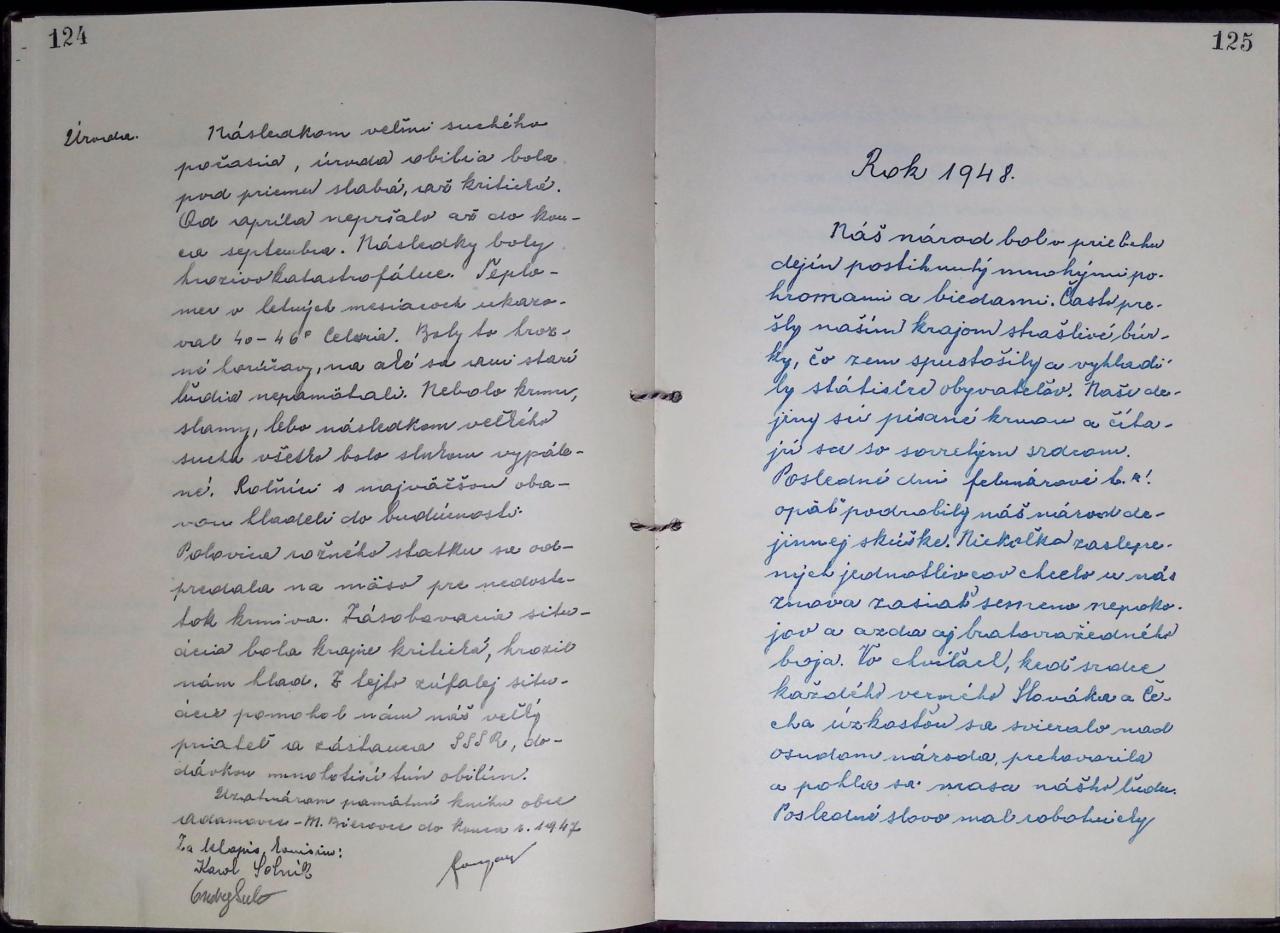 124
Úroda.
Následkom veľmi suchého
počasia, úroda obilia bola
pod priemer slabá, až kritická.
Od apríla nepršalo až do kon-
ca septembra. Následky boly
hrozivo katastrofálne. Teplo-
mer v letných mesiacoch ukazo-
val 40-46° Celzia. Boly to hroz-
né horúčavy, na aké sa ani starí
ľudia nepamätali. Nebolo krmu,
slamy, lebo následkom veľkého
sucha všetko bolo slnkom vypále-
né. Roľníci s najväčšou oba-
vou hladeli do budúcnosti.
Polovica rožného statku sa od-
predala na mäso pre nedosta-
tok krmiva. Zásobovacia situ-
ácia bola krajne kritická, hrozil
nám hlad. Z tejto zúfalej situ-
ácie pomohol nám náš veľký
priateľ a zástanca SSSR, do-
dávkou mnohotisíc tún obilím.
Uzatváram pamätnú knihu obce
Adamovce-M. Bierovce do konca r. 1947
Za kromis. komisiu:
Karol
125
Rok 1948.
Náš národ bol v priebehu
dejín postihnutý mnohými po-
hromami a biedami. Často pre-
šly naším krajom strašlivé búr-
ky, čo zem spustošily a vyhladi-
ly státisíce obyvateľov. Naše de-
jiny sú písané krvou a číta-
jú sa so sovretým srdcom.
Posledné dni februárové t.r.
opäť podrobily náš národ de-
jinnej skúške. Niekoľko zaslepe-
ných jednotlivcov chcelo u nás
znova zasiať semeno nepoko-
jov a azda aj bratovražedného
boja. Vo chvíľach, keď srdce
každého verného Slováka a Če-
cha úzkosťou sa svieralo nad
osudom národa, prehovorila
a pohla sa masa nášho ľudu.
Posledné slovo mal robotnícky